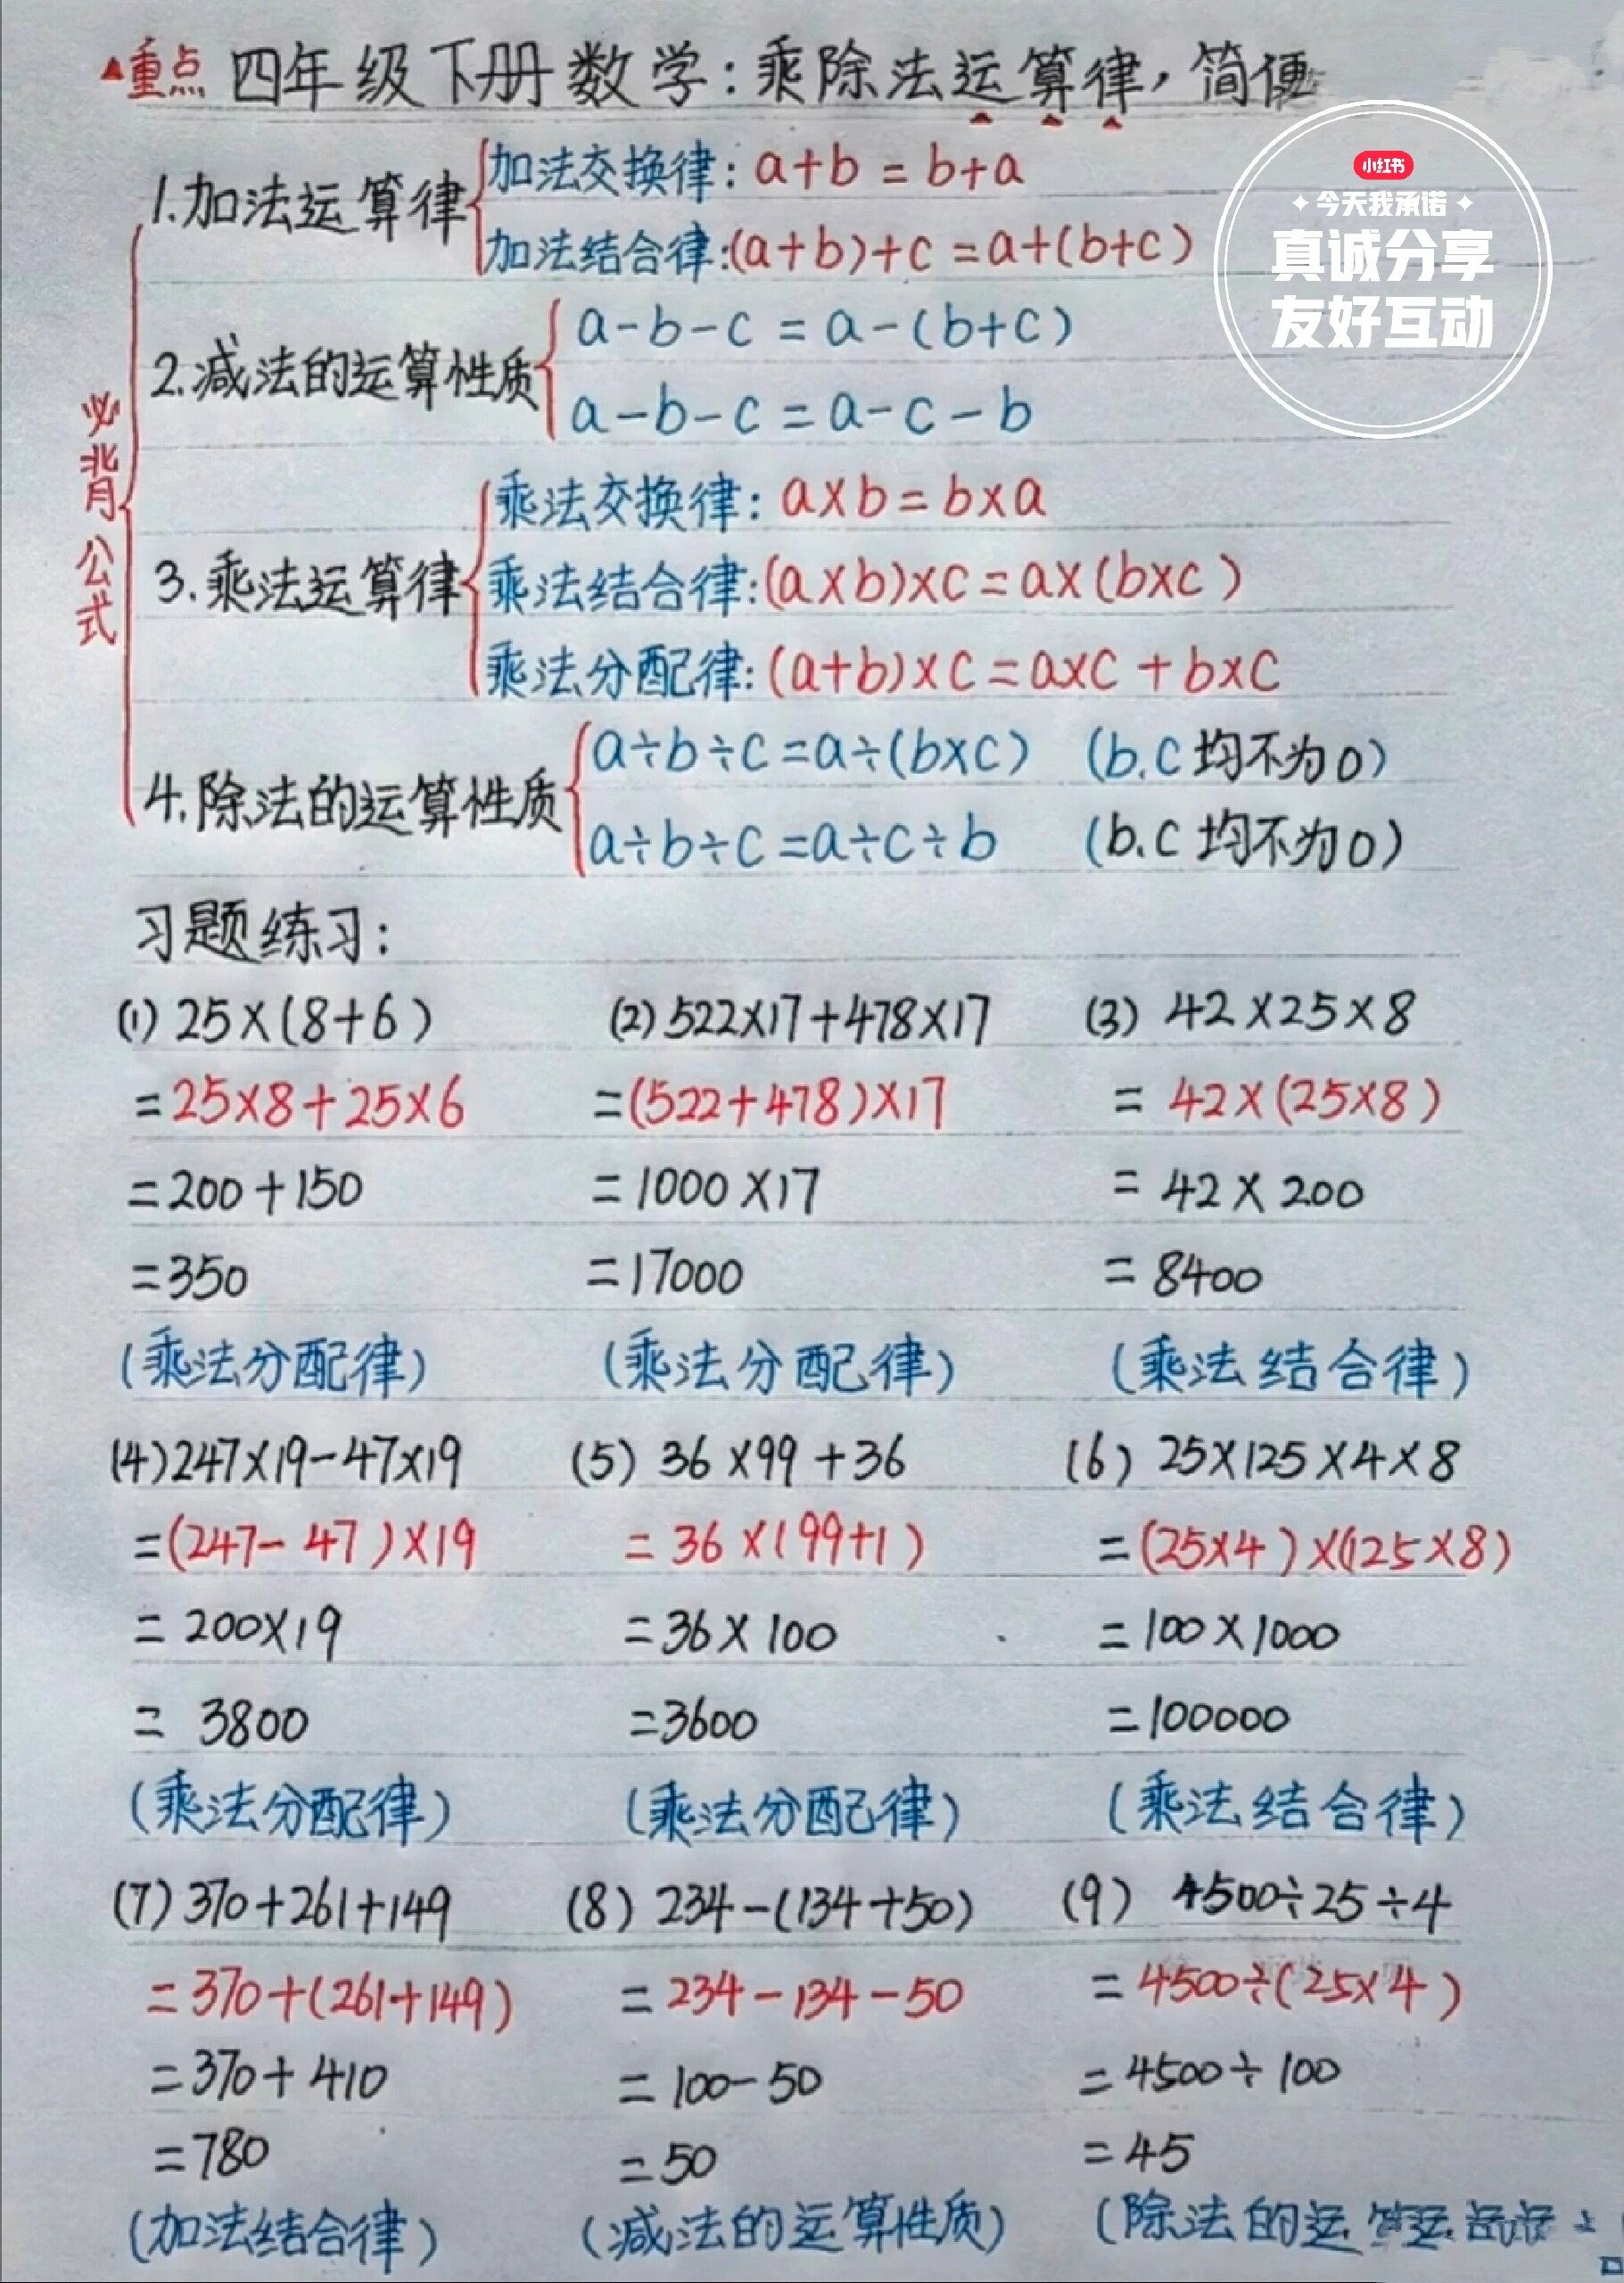 重点 四年级下册数学：乘除法运算律，简便
小红书
今天我承诺
真诚分享
友好互动
必背公式
1.加法运算律
加法交换律：a+b=b+a
加法结合律：(a+b)+c=a+(b+c)
2.减法的运算性质
a-b-c=a-(b+c)
a-b-c=a-c-b
3.乘法运算律
乘法交换律：a×b=b×a
乘法结合律：(a×b)×c=a×(b×c)
乘法分配律：(a+b)×c=a×c+b×c
4.除法的运算性质
a÷b÷c=a÷(b×c) (b.c均不为0)
a÷b÷c=a÷c÷b (b.c均不为0)
习题练习：
(1) 25×(8+6) (2) 522×17+478×17 (3) 42×25×8
=25×8+25×6 =(522+478)×17 =42×(25×8)
=200+150 =1000×17 =42×200
=350 =17000 =8400
(乘法分配律) (乘法分配律) (乘法结合律)
(4) 247×19-47×19 (5) 36×99+36 (6) 25×125×4×8
=(247-47)×19 =36×(99+1) =(25×4)×(125×8)
=200×19 =36×100 =100×1000
=3800 =3600 =100000
(乘法分配律) (乘法分配律) (乘法结合律)
(7) 370+261+149 (8) 234-(134+50) (9) 4500÷25÷4
=370+(261+149) =234-134-50 =4500÷(25×4)
=370+410 =100-50 =4500÷100
=780 =50 =45
(加法结合律) (减法的运算性质) (除法的运